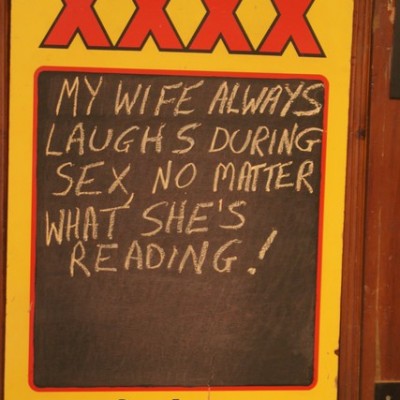 XXXX
MY WIFE ALWAYS
LAUGHS DURING
SEX, NO MATTER
WHAT SHE'S
READING!